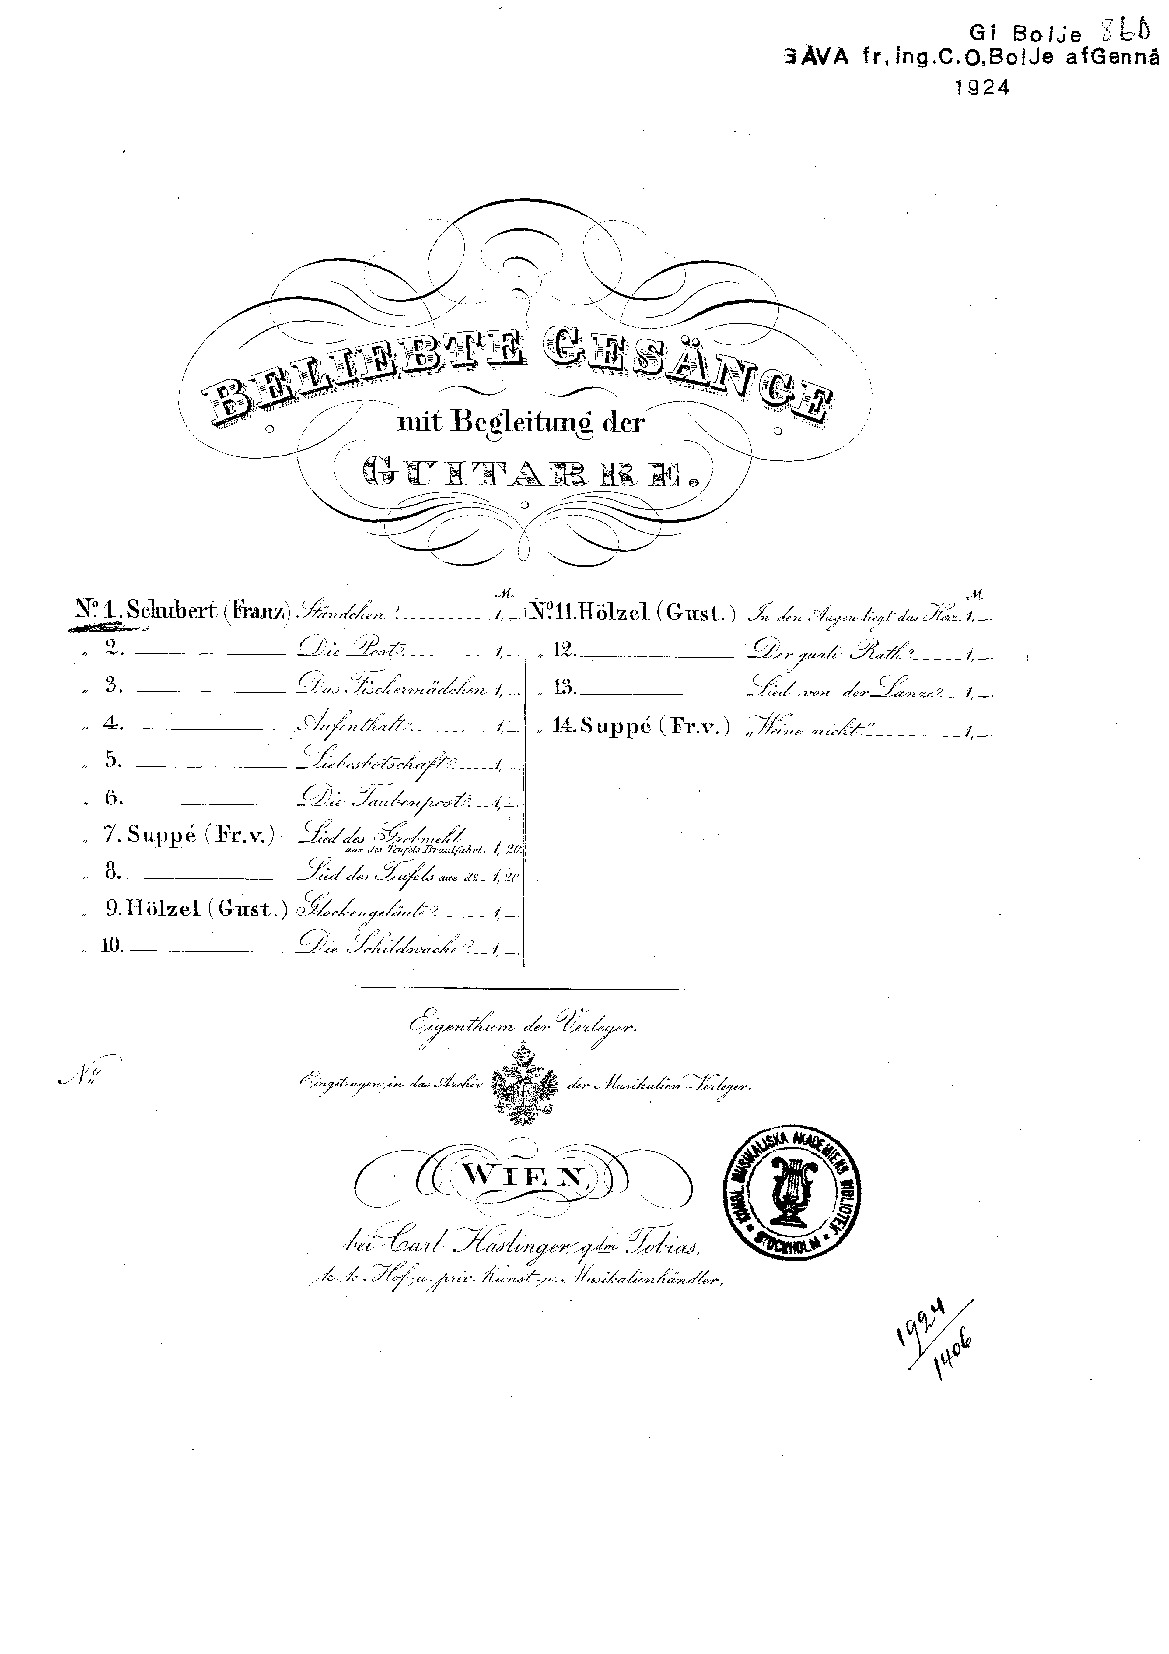 GI BolJe 860
GÅVA fr, ing.C.O,BolJe afGennä
1924
BELIEBTE GESÄNGE
mit Begleitung der
GUITARRE.
M.
No. 1. Schubert (Franz) Ständchen 1,_
„ 2. Die Post 1,_
„ 3. Das Fischermädchen 1,_
„ 4. Aufenthalt 1,_
„ 5. Liebesbotschaft 1,_
„ 6. Die Taubenpost 1,_
„ 7. Suppé (Fr.v.) Lied des
aus des Teufels Brautfahrt. 1, 20
„ 8. Lied des Teufels aus do 1, 20
„ 9. Hölzel (Gust.) Glockengeläute 1,_
„ 10. Die Schildwache 1,_
M.
No. 11. Hölzel (Gust.) In den Augen liegt das Herz 1,_
„ 12. Der guate Rath 1,_
„ 13. Lied von der Lanze 1,_
„ 14. Suppé (Fr.v.) „Weine nicht" 1,_
Eigenthum der Verleger.
No.
Eingetragen in das Archiv der Musikalien-Verleger.
WIEN,
bei Carl Haslinger qdm Tobias,
k. k. Hof- u. priv. Kunst- u. Musikalienhändler.
KUNGL MUSIKALISKA AKADEMIENS BIBLIOTEK
STOCKHOLM
1924
1406